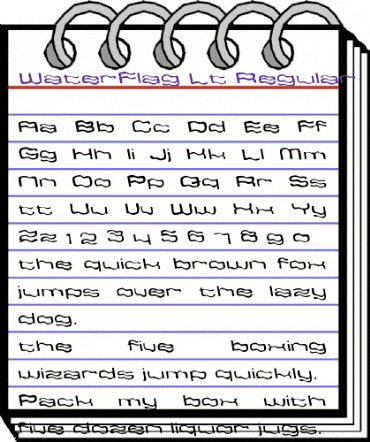 WaterFlag Lt Regular
Aa Bb Cc Dd Ee Ff
Gg Hh Ii Jj Kk Ll Mm
Nn Oo Pp Qq Rr Ss
tt Uu Vv Ww Xx Yy
Zz 1 2 3 4 5 6 7 8 9 0
the quick brown fox
jumps over the lazy
dog.
the five boxing
wizards jump quickly.
Pack my box with
five dozen liquor jugs.